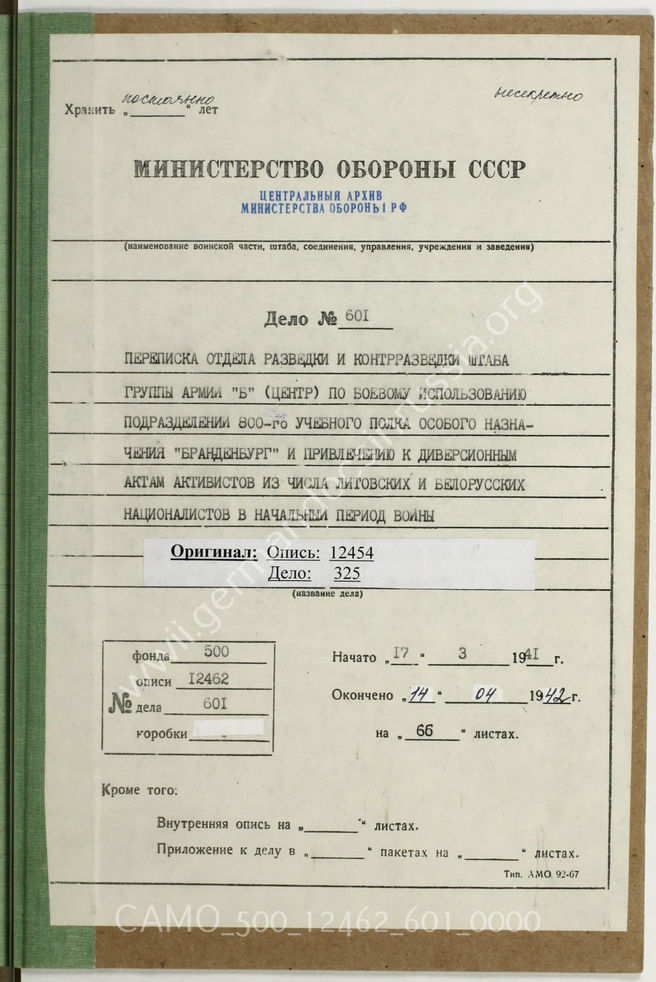 постоянно
несекретно
Хранить „ “ лет
МИНИСТЕРСТВО ОБОРОНЫ СССР
ЦЕНТРАЛЬНЫЙ АРХИВ
МИНИСТЕРСТВА ОБОРОНЫ РФ
(наименование воинской части, штаба, соединения, управления, учреждения и заведения)
Дело № 60I
ПЕРЕПИСКА ОТДЕЛА РАЗВЕДКИ И КОНТРРАЗВЕДКИ ШТАБА
ГРУППЫ АРМИИ "Б" (ЦЕНТР) ПО БОЕВОМУ ИСПОЛЬЗОВАНИЮ
ПОДРАЗДЕЛЕНИИ 800-го УЧЕБНОГО ПОЛКА ОСОБОГО НАЗНА-
ЧЕНИЯ "БРАНДЕНБУРГ" И ПРИВЛЕЧЕНИЮ К ДИВЕРСИОННЫМ
АКТАМ АКТИВИСТОВ ИЗ ЧИСЛА ЛИТОВСКИХ И БЕЛОРУССКИХ
НАЦИОНАЛИСТОВ В НАЧАЛЬНЫЙ ПЕРИОД ВОЙНЫ
Оригинал: Опись: 12454
Дело: 325
(название дела)
фонда 500
описи I2462
№ дела 60I
коробки
Начато „I7“ 3 194I г.
Окончено „14“ 04 1942 г.
на „66“ листах.
Кроме того:
Внутренняя опись на „ “ листах.
Приложение к делу в „ “ пакетах на „ “ листах.
Тип. АМО 92-67
www.wwii.germandocsinrussia.org
CAMO_500_12462_601_0000